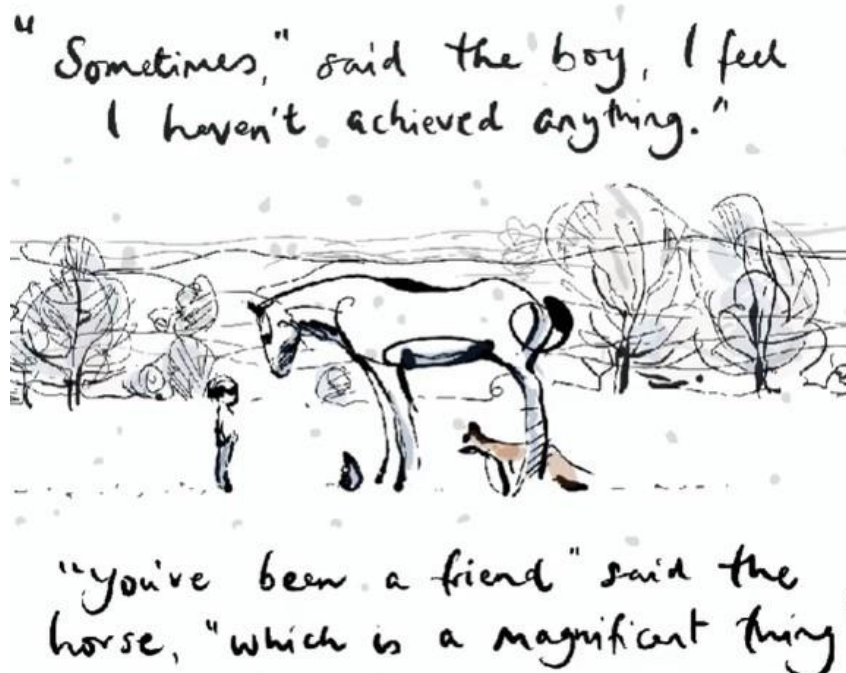 "Sometimes," said the boy, I feel
I haven't achieved anything."
"You've been a friend" said the
horse, "which is a magnificent thing